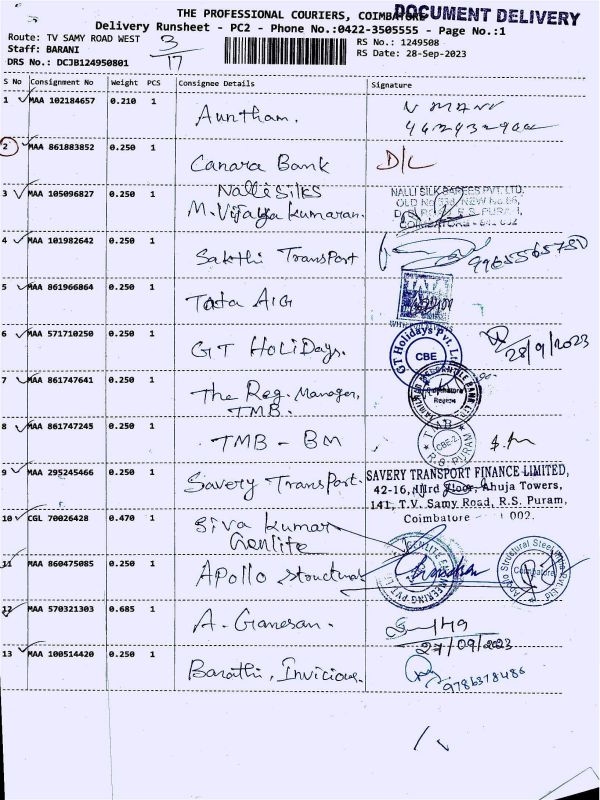 THE PROFESSIONAL COURIERS, COIMBATORE
DOCUMENT DELIVERY
Delivery Runsheet - PC2 - Phone No.:0422-3505555 - Page No.:1
Route: TV SAMY ROAD WEST
RS No.: 1249508
Staff: BARANI
RS Date: 28-Sep-2023
DRS No.: DCJB124950801
3/17
S No Consignment No Weight PCS Consignee Details Signature
1 MAA 102184657 0.210 1 Auntham.
2 MAA 861883852 0.250 1 Canara Bank D/L
3 MAA 105096827 0.250 1 Nalli Silks
M. Vijaya Kumaran.
NALLI SILK SAREES PVT. LTD.
4 MAA 101982642 0.250 1 Sakthi Transport
5 MAA 861966864 0.250 1 Tata AIG
TATA
6 MAA 571710250 0.250 1 GT HoLiDays.
GT Holidays Pvt. Ltd
CBE
28/9/2023
7 MAA 861747641 0.250 1 The Reg. Manager,
TMB.
Coimbatore
Region
8 MAA 861747245 0.250 1 TMB - BM
CBE-2
R.S PURAM
9 MAA 295245466 0.250 1 Savery Transport.
SAVERY TRANSPORT FINANCE LIMITED,
42-16, IIIrd Floor, Ahuja Towers,
141, T.V. Samy Road, R.S. Puram,
Coimbatore 002.
10 CGL 70026428 0.470 1 Siva Kumar
Genlite
11 MAA 860475085 0.250 1 Apollo structural
Apollo Structural Steel
Coimbatore
12 MAA 570321303 0.685 1 A. Ganesan.
27/09/2023
13 MAA 100514420 0.250 1 Barathi, Invicious.
9786378486